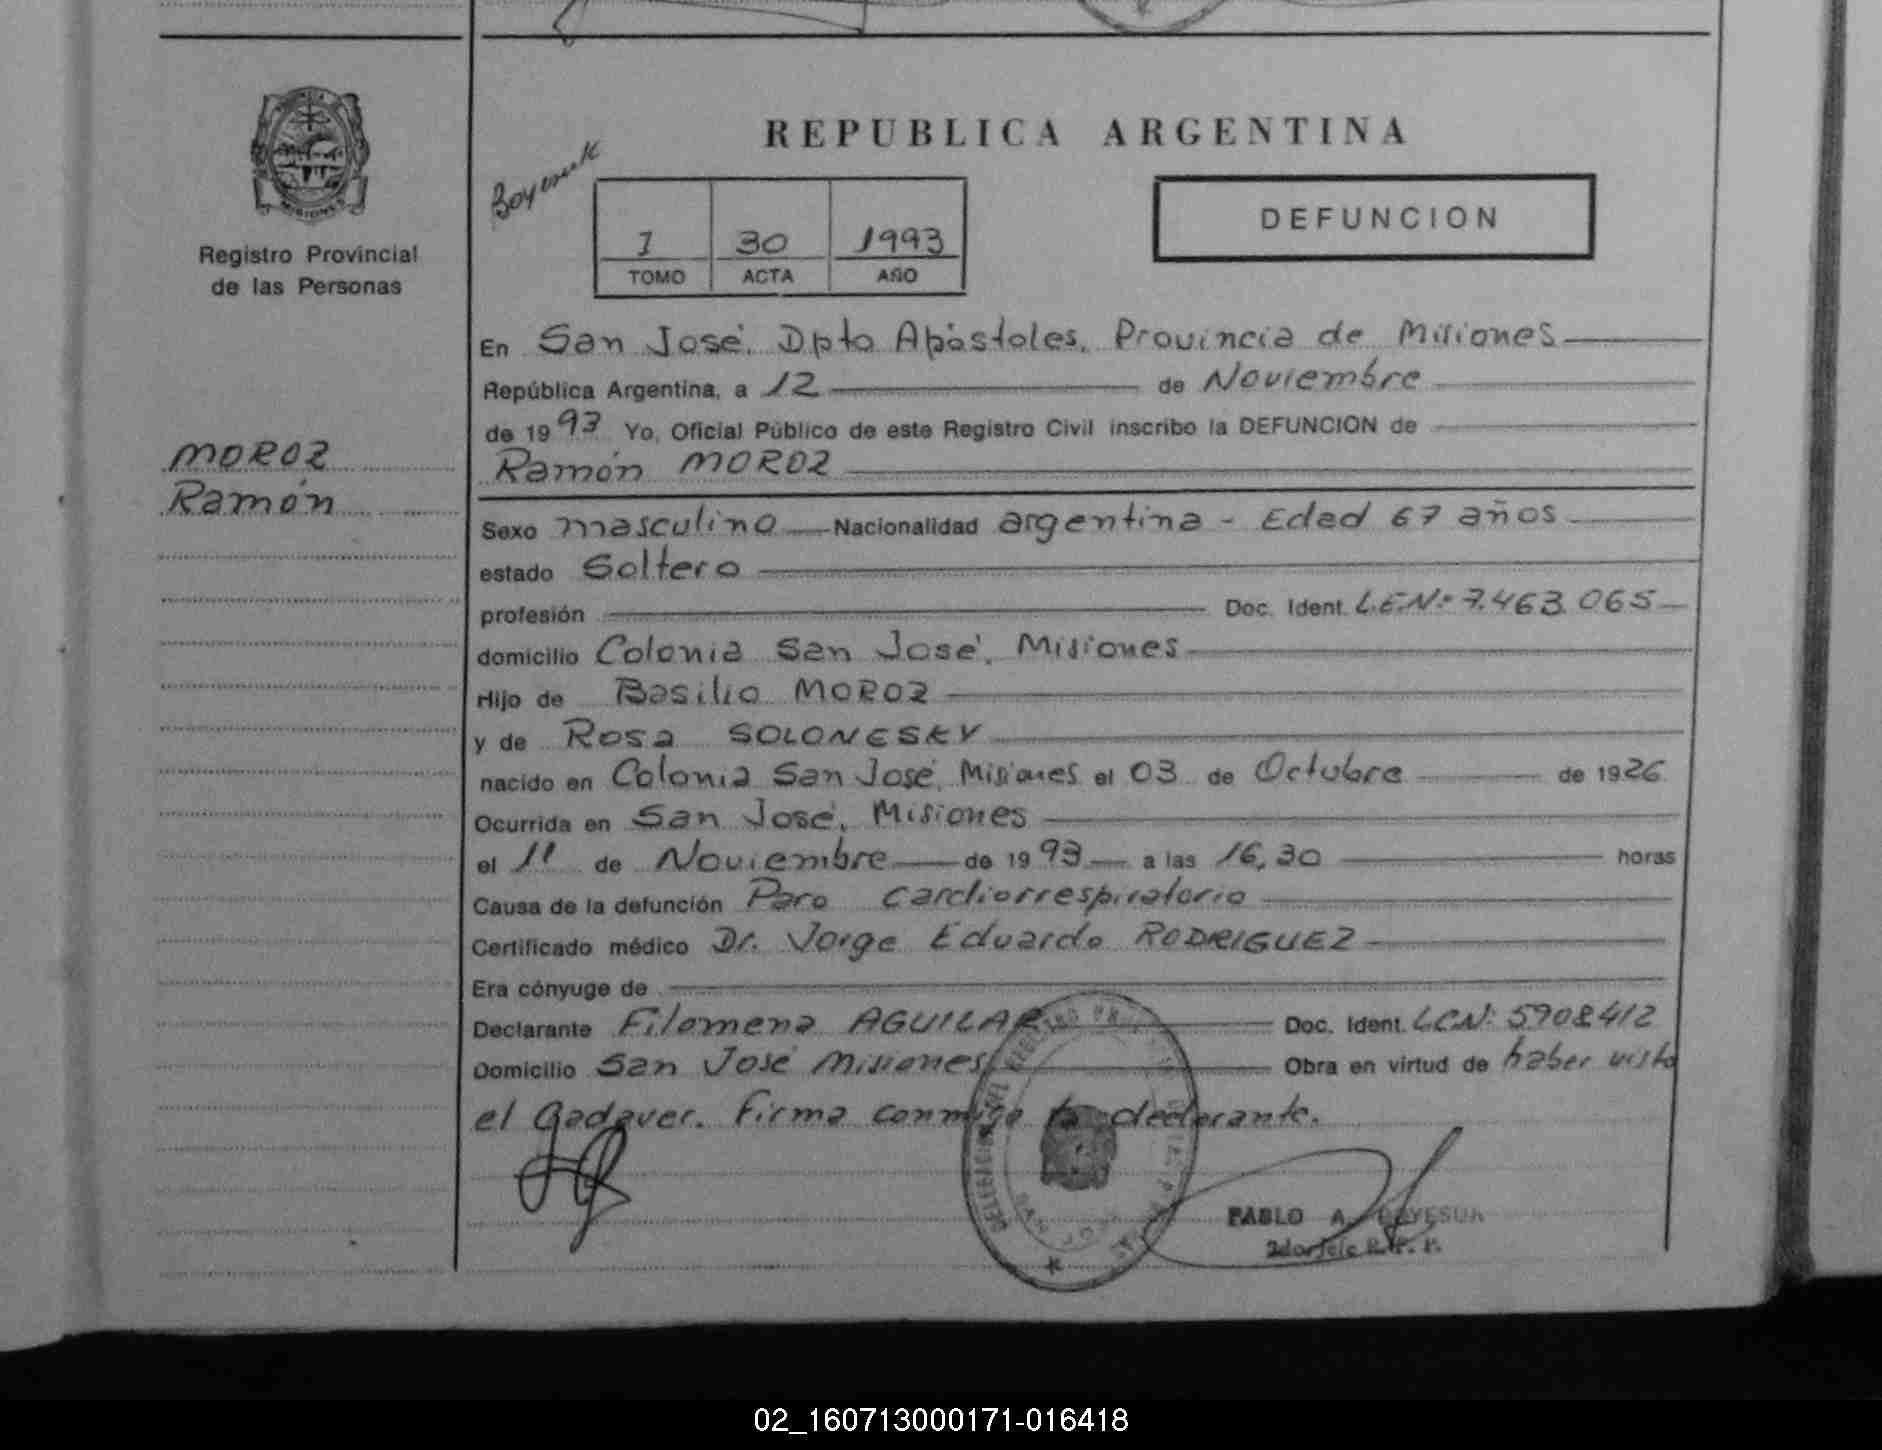 REPUBLICA ARGENTINA
Registro Provincial
de las Personas
MISIONES
1 30 1993
TOMO ACTA AÑO
DEFUNCION
En San José, Dpto Apóstoles, Provincia de Misiones
República Argentina, a 12 de Noviembre
de 1993 Yo, Oficial Público de este Registro Civil inscribo la DEFUNCION de
Ramón MOROZ
MOROZ
Ramón
Sexo masculino Nacionalidad argentina - Edad 67 años
estado Soltero
profesión Doc. Ident. L.E.Nº 7.463.065
domicilio Colonia San José, Misiones
Hijo de Basilio MOROZ
y de Rosa SOLONESKY
nacido en Colonia San José, Misiones el 03 de Octubre de 1926
Ocurrida en San José, Misiones
el 11 de Noviembre de 1993 a las 16,30 horas
Causa de la defunción Paro cardiorrespiratorio
Certificado médico Dr. Jorge Eduardo RODRIGUEZ
Era cónyuge de
Declarante Filomena AGUILAR Doc. Ident. LCN: 5908412
Domicilio San José Misiones Obra en virtud de haber visto
el Cadaver. Firma conmigo la declarante.
PABLO A.
02_160713000171-016418